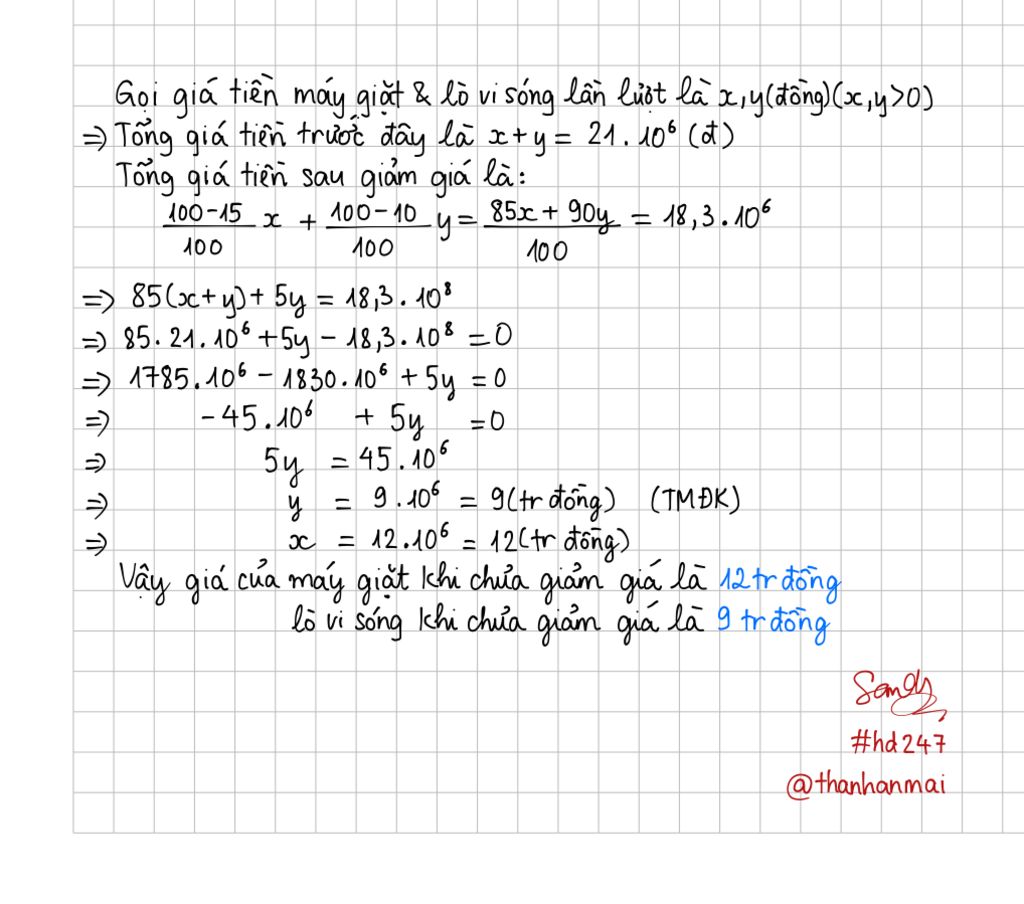 Gọi giá tiền máy giặt & lò vi sóng lần lượt là x,y(đồng)(x,y>0)
=> Tổng giá tiền trước đây là x+y = 21.10⁶ (đ)
Tổng giá tiền sau giảm giá là:
(100-15)/100 x + (100-10)/100 y = (85x + 90y)/100 = 18,3.10⁶
=> 85(x+y)+ 5y = 18,3.10⁸
=> 85.21.10⁶ +5y - 18,3.10⁸ =0
=> 1785.10⁶ - 1830.10⁶ + 5y =0
=> -45.10⁶ + 5y =0
=> 5y = 45.10⁶
=> y = 9.10⁶ = 9(tr đồng) (TMĐK)
=> x = 12.10⁶ = 12(tr đồng)
Vậy giá của máy giặt khi chưa giảm giá là 12tr đồng
lò vi sóng khi chưa giảm giá là 9 tr đồng
Sandy
#hd247
@thanhanmai